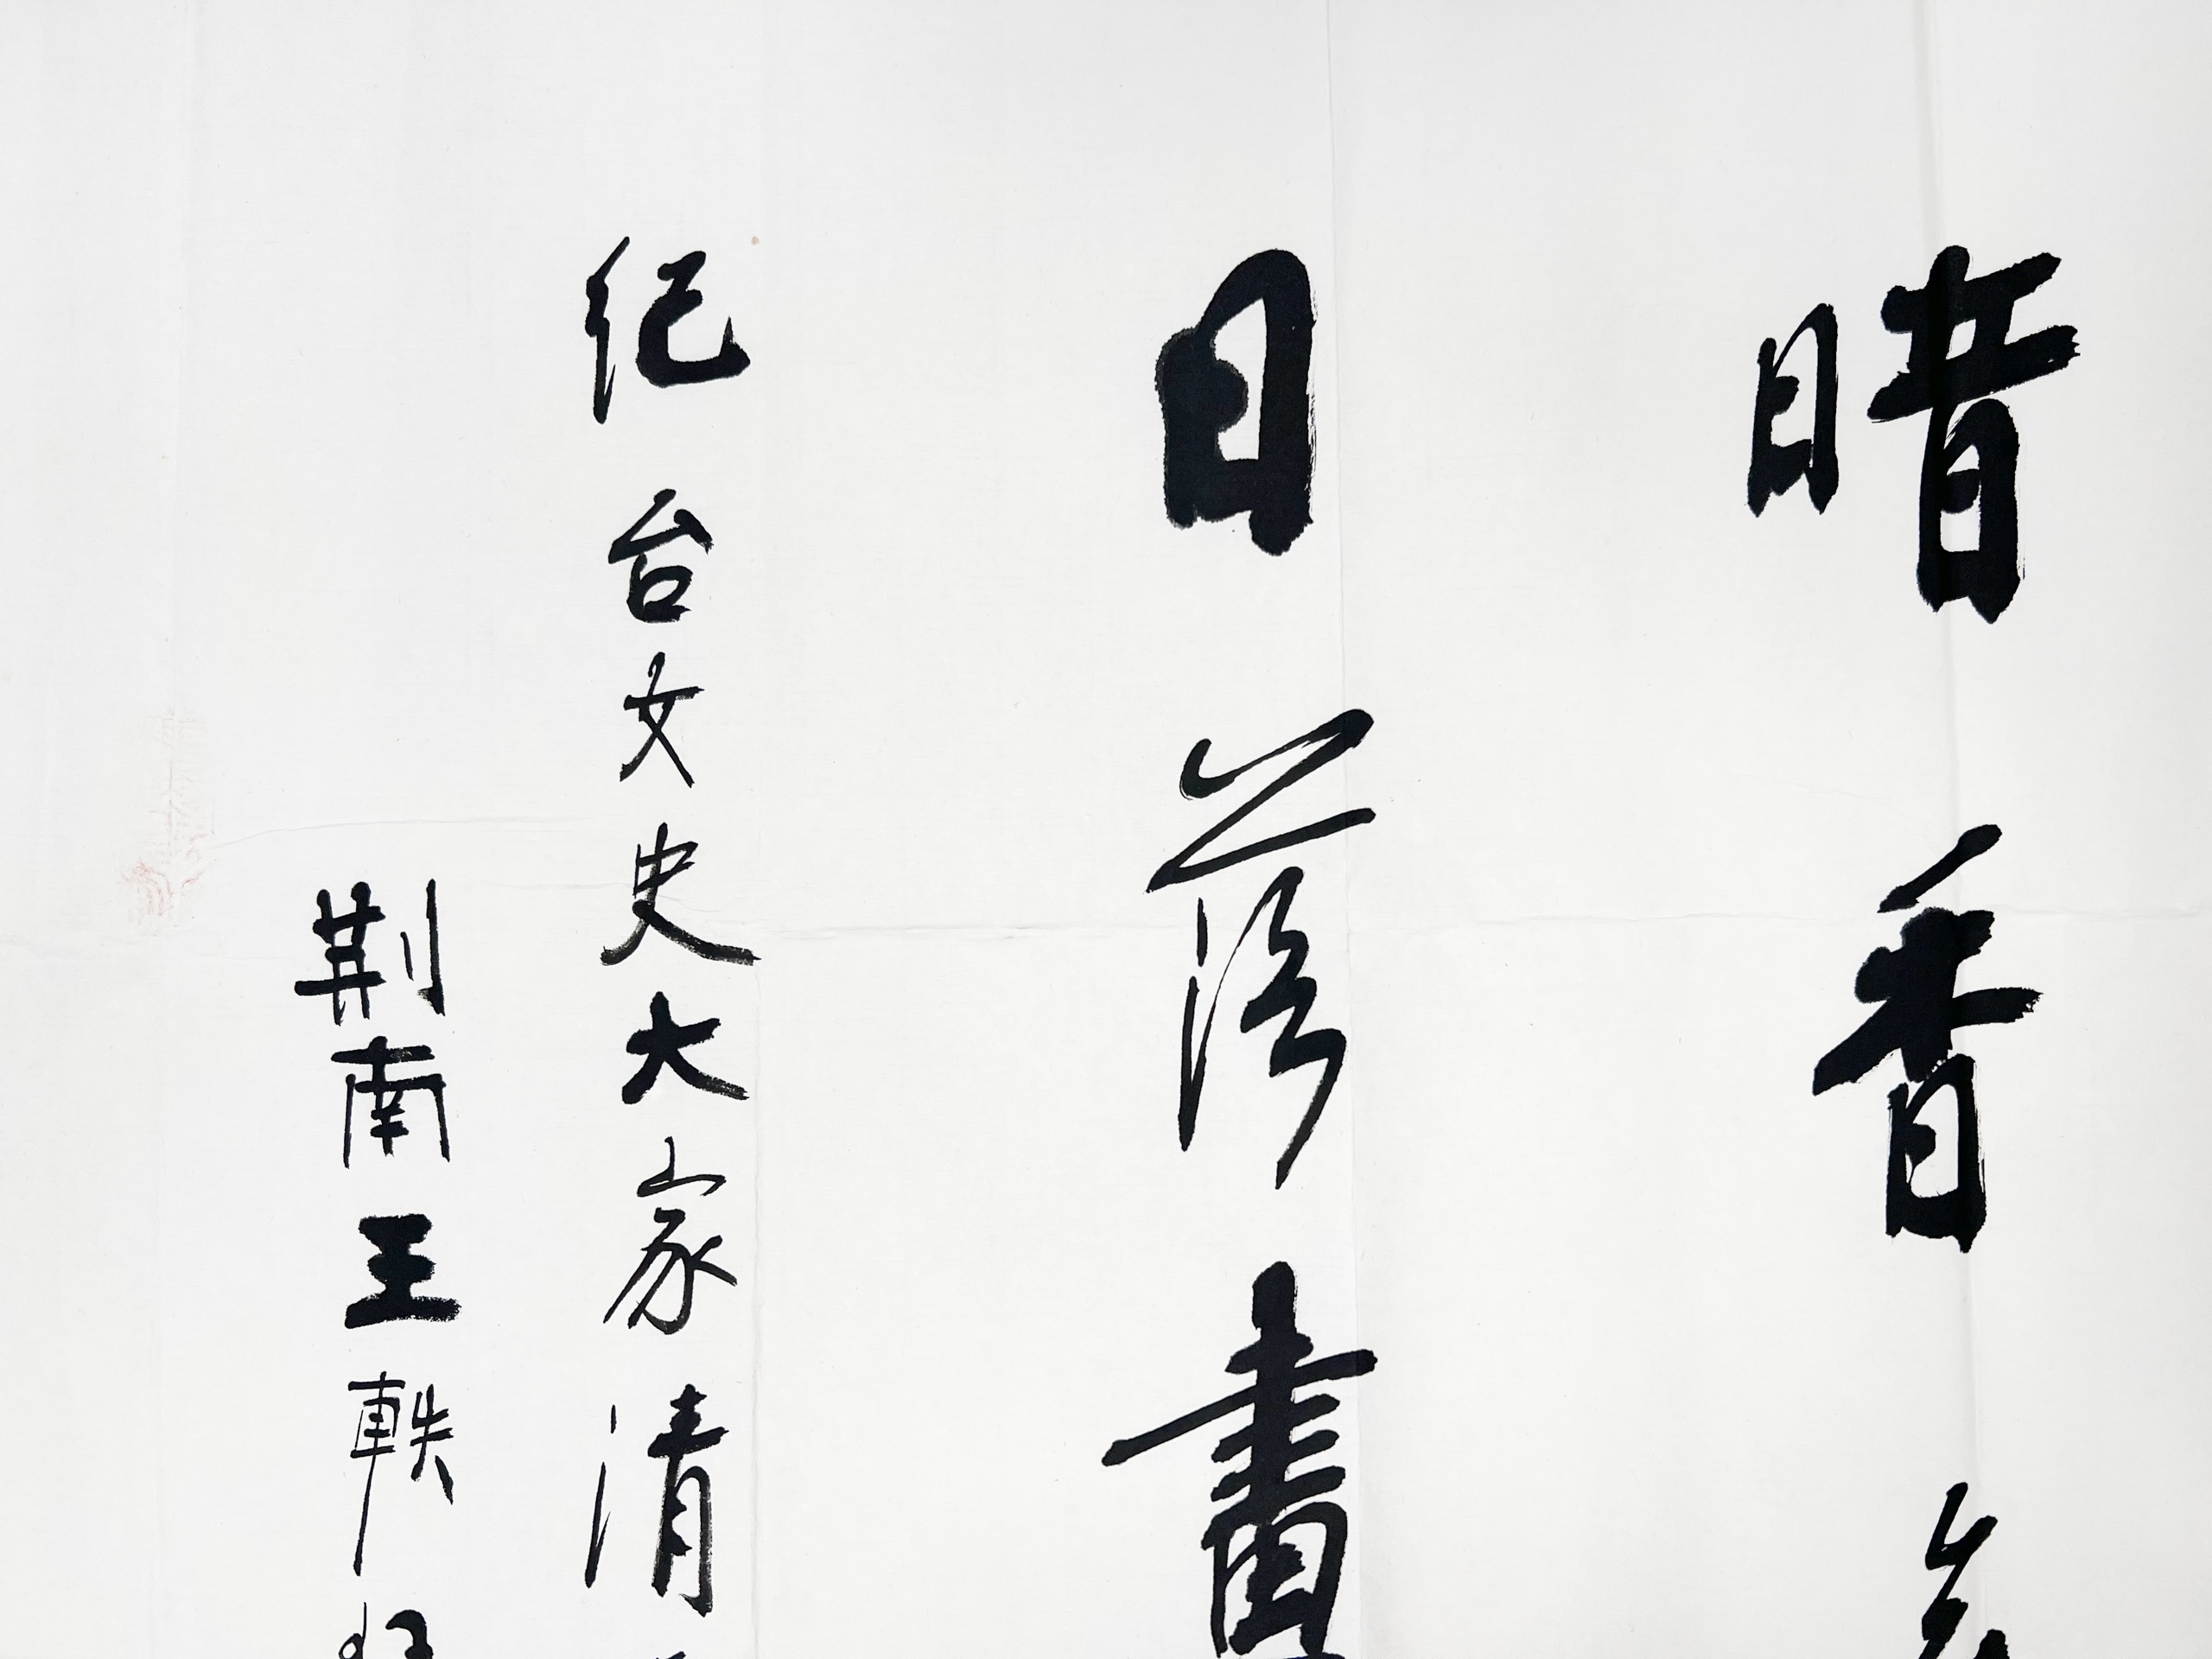 晴香
日落畫
纪台文史大家清
荆南王軼